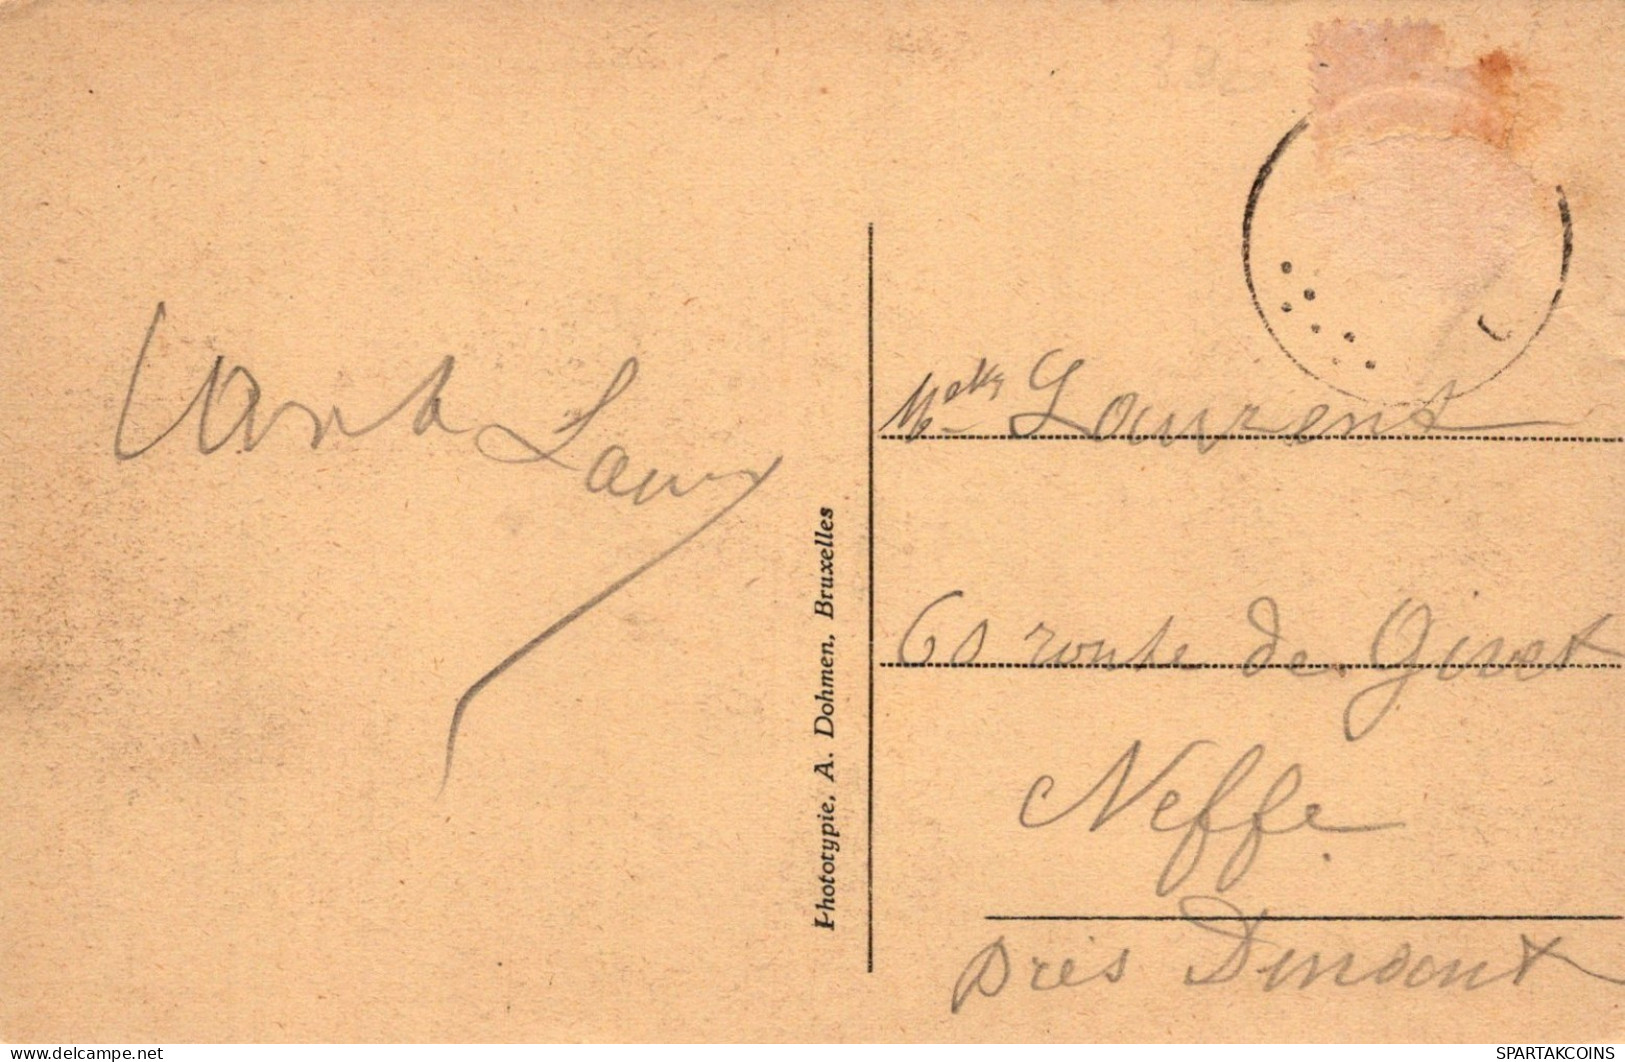 Phototypie, A. Dohmen, Bruxelles
Laurent
60 route de Givet
Neffe
près Dinant
www.delcampe.net
SPARTAKCOINS